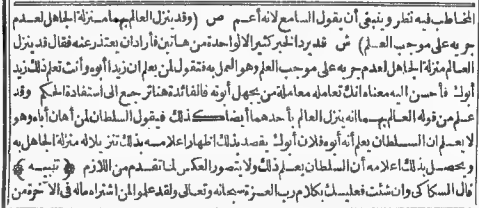 المخاطب فيه نظر وينبغى أن يقول السامع لانه أعم ص (وقد ينزل العالم بهما منزلة الجاهل لعدم
جريه على موجب العلم) ش قد يرد الخبر كثيرا لا لواحدة من هاتين فأراد أن يعتذر عنه فقال قد ينزل
العالم منزلة الجاهل لعدم جريه على موجب العلم وهو العمل به فتقول لمن يعلم ان زيدا أبوه وأنت تعلم ذلك زيد
أبوك فأحسن اليه معناه انك تعامله معاملة من يجهل أبوته فالفائدة هنا ترجع الى استفادة الحكم وقد
علم من قوله العالم بهما انه ينزل العالم بأحدهما أيضا كذلك فيقول السلطان لمن أهان أباه وهو
لا يعلم ان السلطان يعلم أنه أبوه فلان أبوك يقصد بذلك اظهار اعلامه بذلك تنزيلا له منزلة الجاهل به
ويحصل بذلك اعلامه أن السلطان يعلم ذلك ولا يتصور العكس لما تقدم من اللازم ﴿تنبيه﴾
قال السكاكى وان شئت فعليك بكلام رب العزة سبحانه وتعالى ولقد علموا لمن اشتراه ماله فى الآخرة من